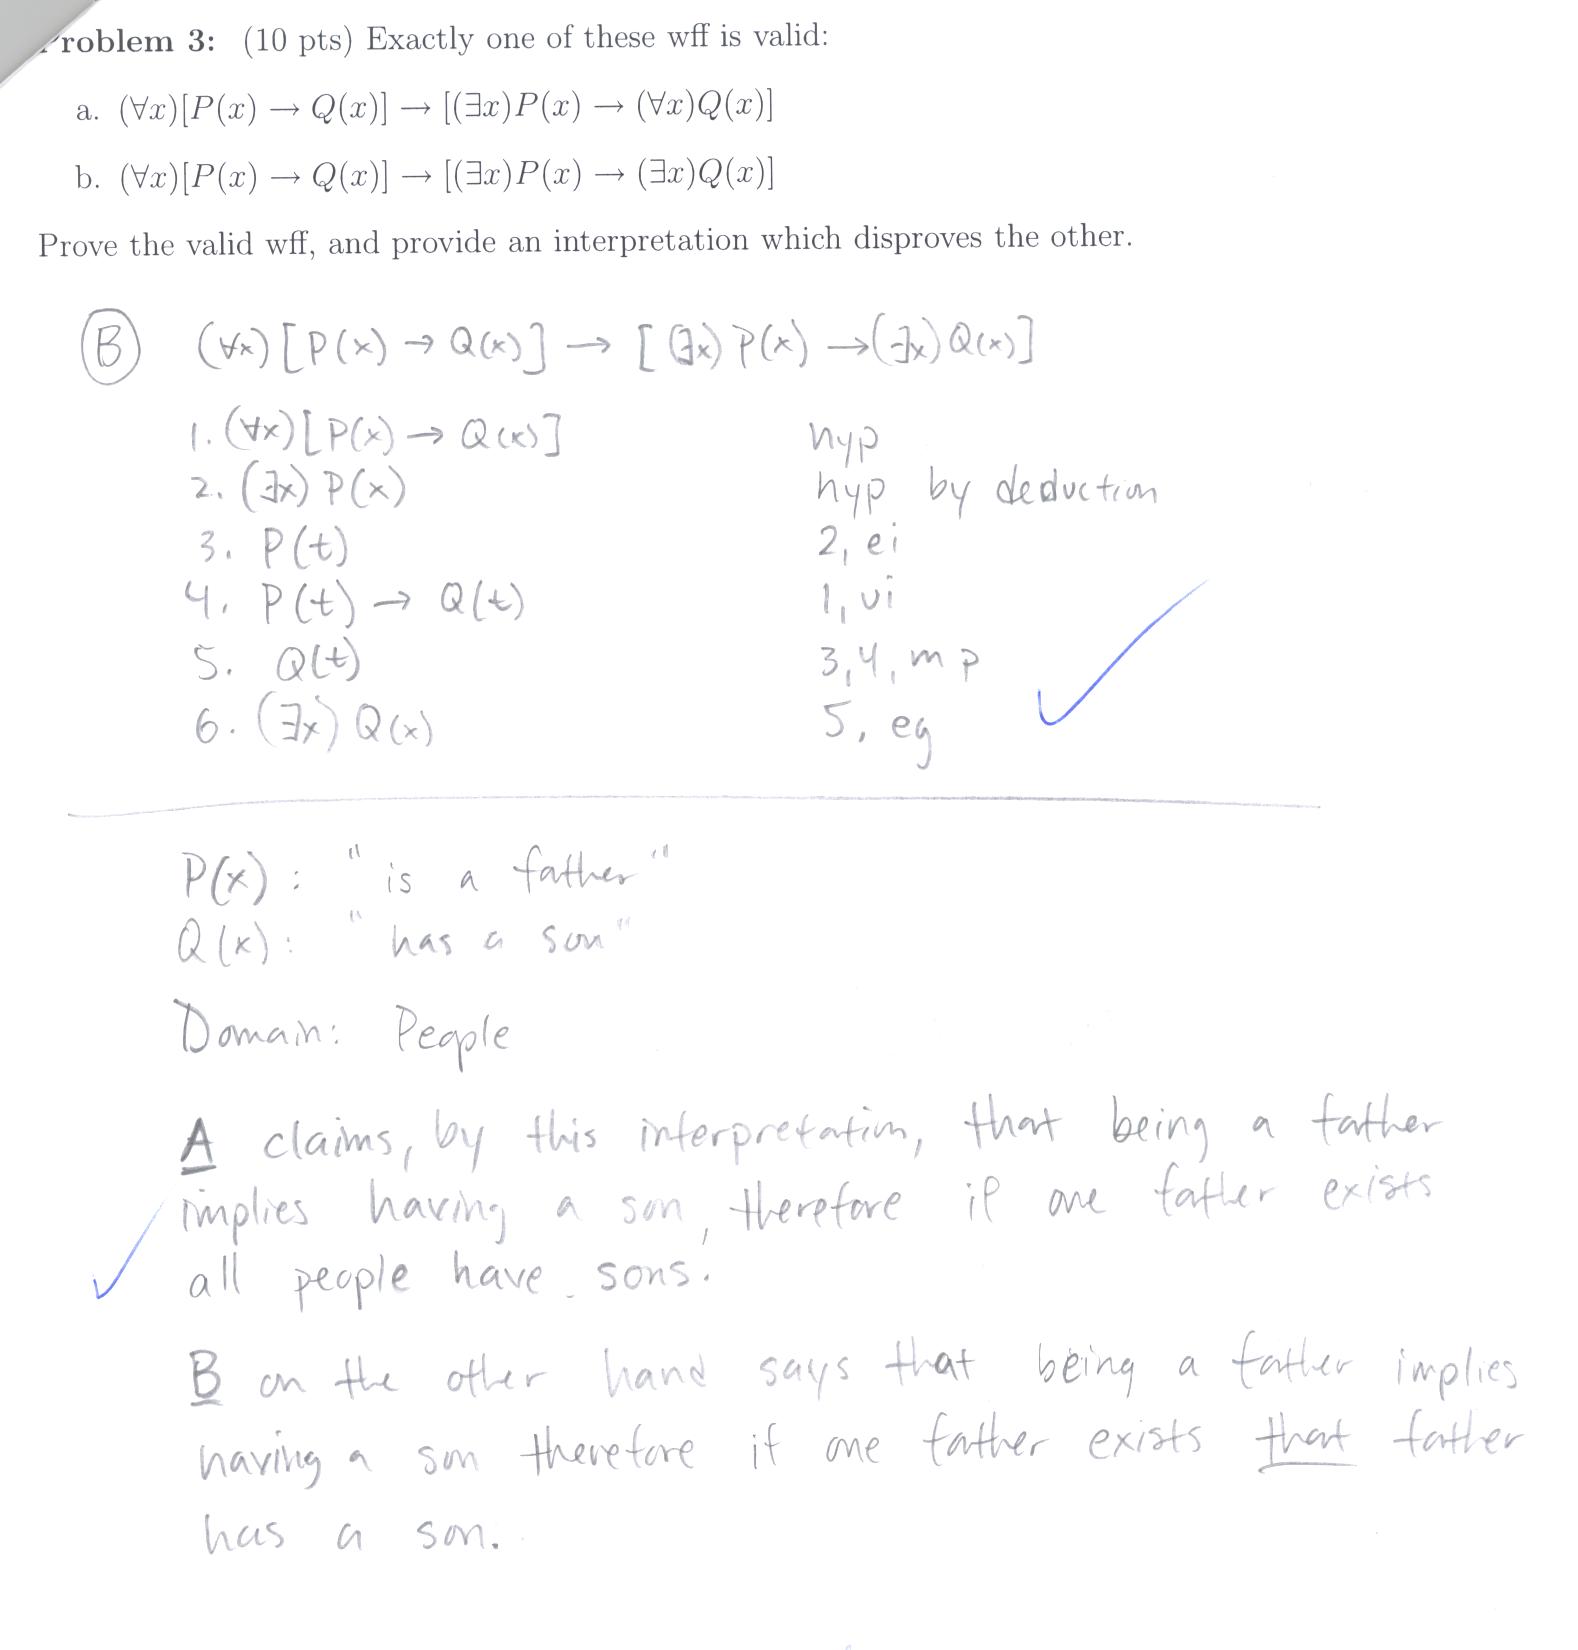 roblem 3: (10 pts) Exactly one of these wff is valid:
a. (∀x)[P(x) → Q(x)] → [(∃x)P(x) → (∀x)Q(x)]
b. (∀x)[P(x) → Q(x)] → [(∃x)P(x) → (∃x)Q(x)]
Prove the valid wff, and provide an interpretation which disproves the other.
B (∀x)[P(x) → Q(x)] → [(∃x) P(x) → (∃x) Q(x)]
1. (∀x)[P(x) → Q(x)] hyp
2. (∃x) P(x) hyp by deduction
3. P(t) 2, ei
4. P(t) → Q(t) 1, ui
5. Q(t) 3,4, mp
6. (∃x) Q(x) 5, eg
P(x): "is a father"
Q(x): "has a son"
Domain: People
A claims, by this interpretation, that being a father
implies having a son, therefore if one father exists
all people have sons.
B on the other hand says that being a father implies
having a son therefore if one father exists that father
has a son.